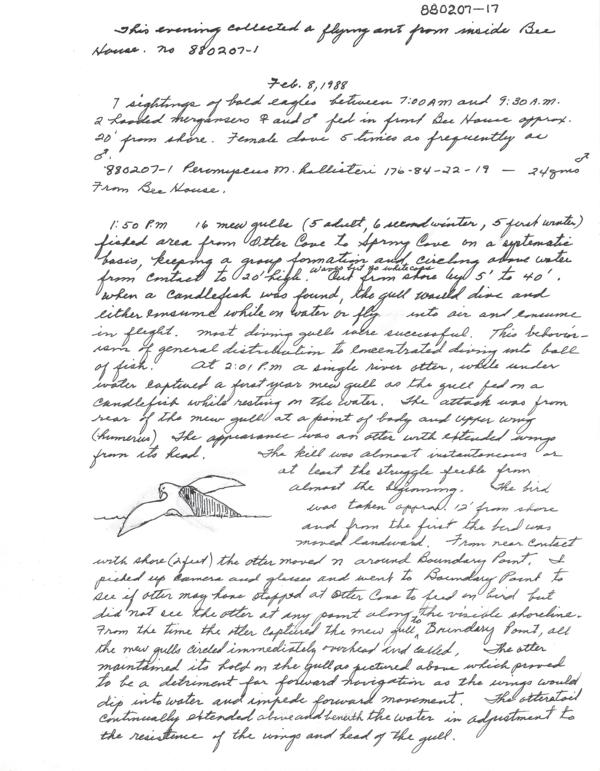 880207-17
This evening collected a flying ant from inside Bee
House. no 880207-1
Feb. 8, 1988
7 sightings of bald eagles between 7:00 AM and 9:30 A.M.
2 hooded mergansers ♀ and ♂ fed in front Bee House approx.
20' from shore. Female dove 5 times as frequently as
♂.
880207-1 Peromyscus M. hollisteri 176-84-22-19 — 24gms ♂
From Bee House.
1:50 P.M 16 mew gulls (5 adult, 6 second winter, 5 first winter)
fished area from Otter Cove to Spring Cove on a systematic
basis, keeping a group formation and circling above water
from contact to 20' high. waves but no whitecaps Out from shore by 5' to 40'.
When a candlefish was found, the gull would dive and
either consume while on water or fly into air and consume
in flight. most diving gulls were successful. This behavior-
ism of general distribution to concentrated diving into ball
of fish. At 2:01 P.M a single river otter, while under
water captured a first year mew gull as the gull fed on a
candlefish while resting on the water. The attack was from
rear of the mew gull at a point of body and upper wing
(humerus) The appearance was an otter with extended wings
from its head. The kill was almost instantaneous or
at least the struggle feeble from
almost the beginning. The bird
was taken approx. 12' from shore
and from the first the bird was
moved landward. From near contact
with shore (2 feet) the otter moved N around Boundary Point. I
picked up camera and glasses and went to Boundary Point to
see if otter may have stopped at Otter Cove to feed on bird but
did not see the otter at any point along the visible shoreline.
From the time the otter captured the mew gull to Boundary Point, all
the mew gulls circled immediately overhead and called. The otter
maintained its hold on the gull as pictured above which proved
to be a detriment for forward navigation as the wings would
dip into water and impede forward movement. The otters tail
continually extended above and beneath the water in adjustment to
the resistence of the wings and head of the gull.